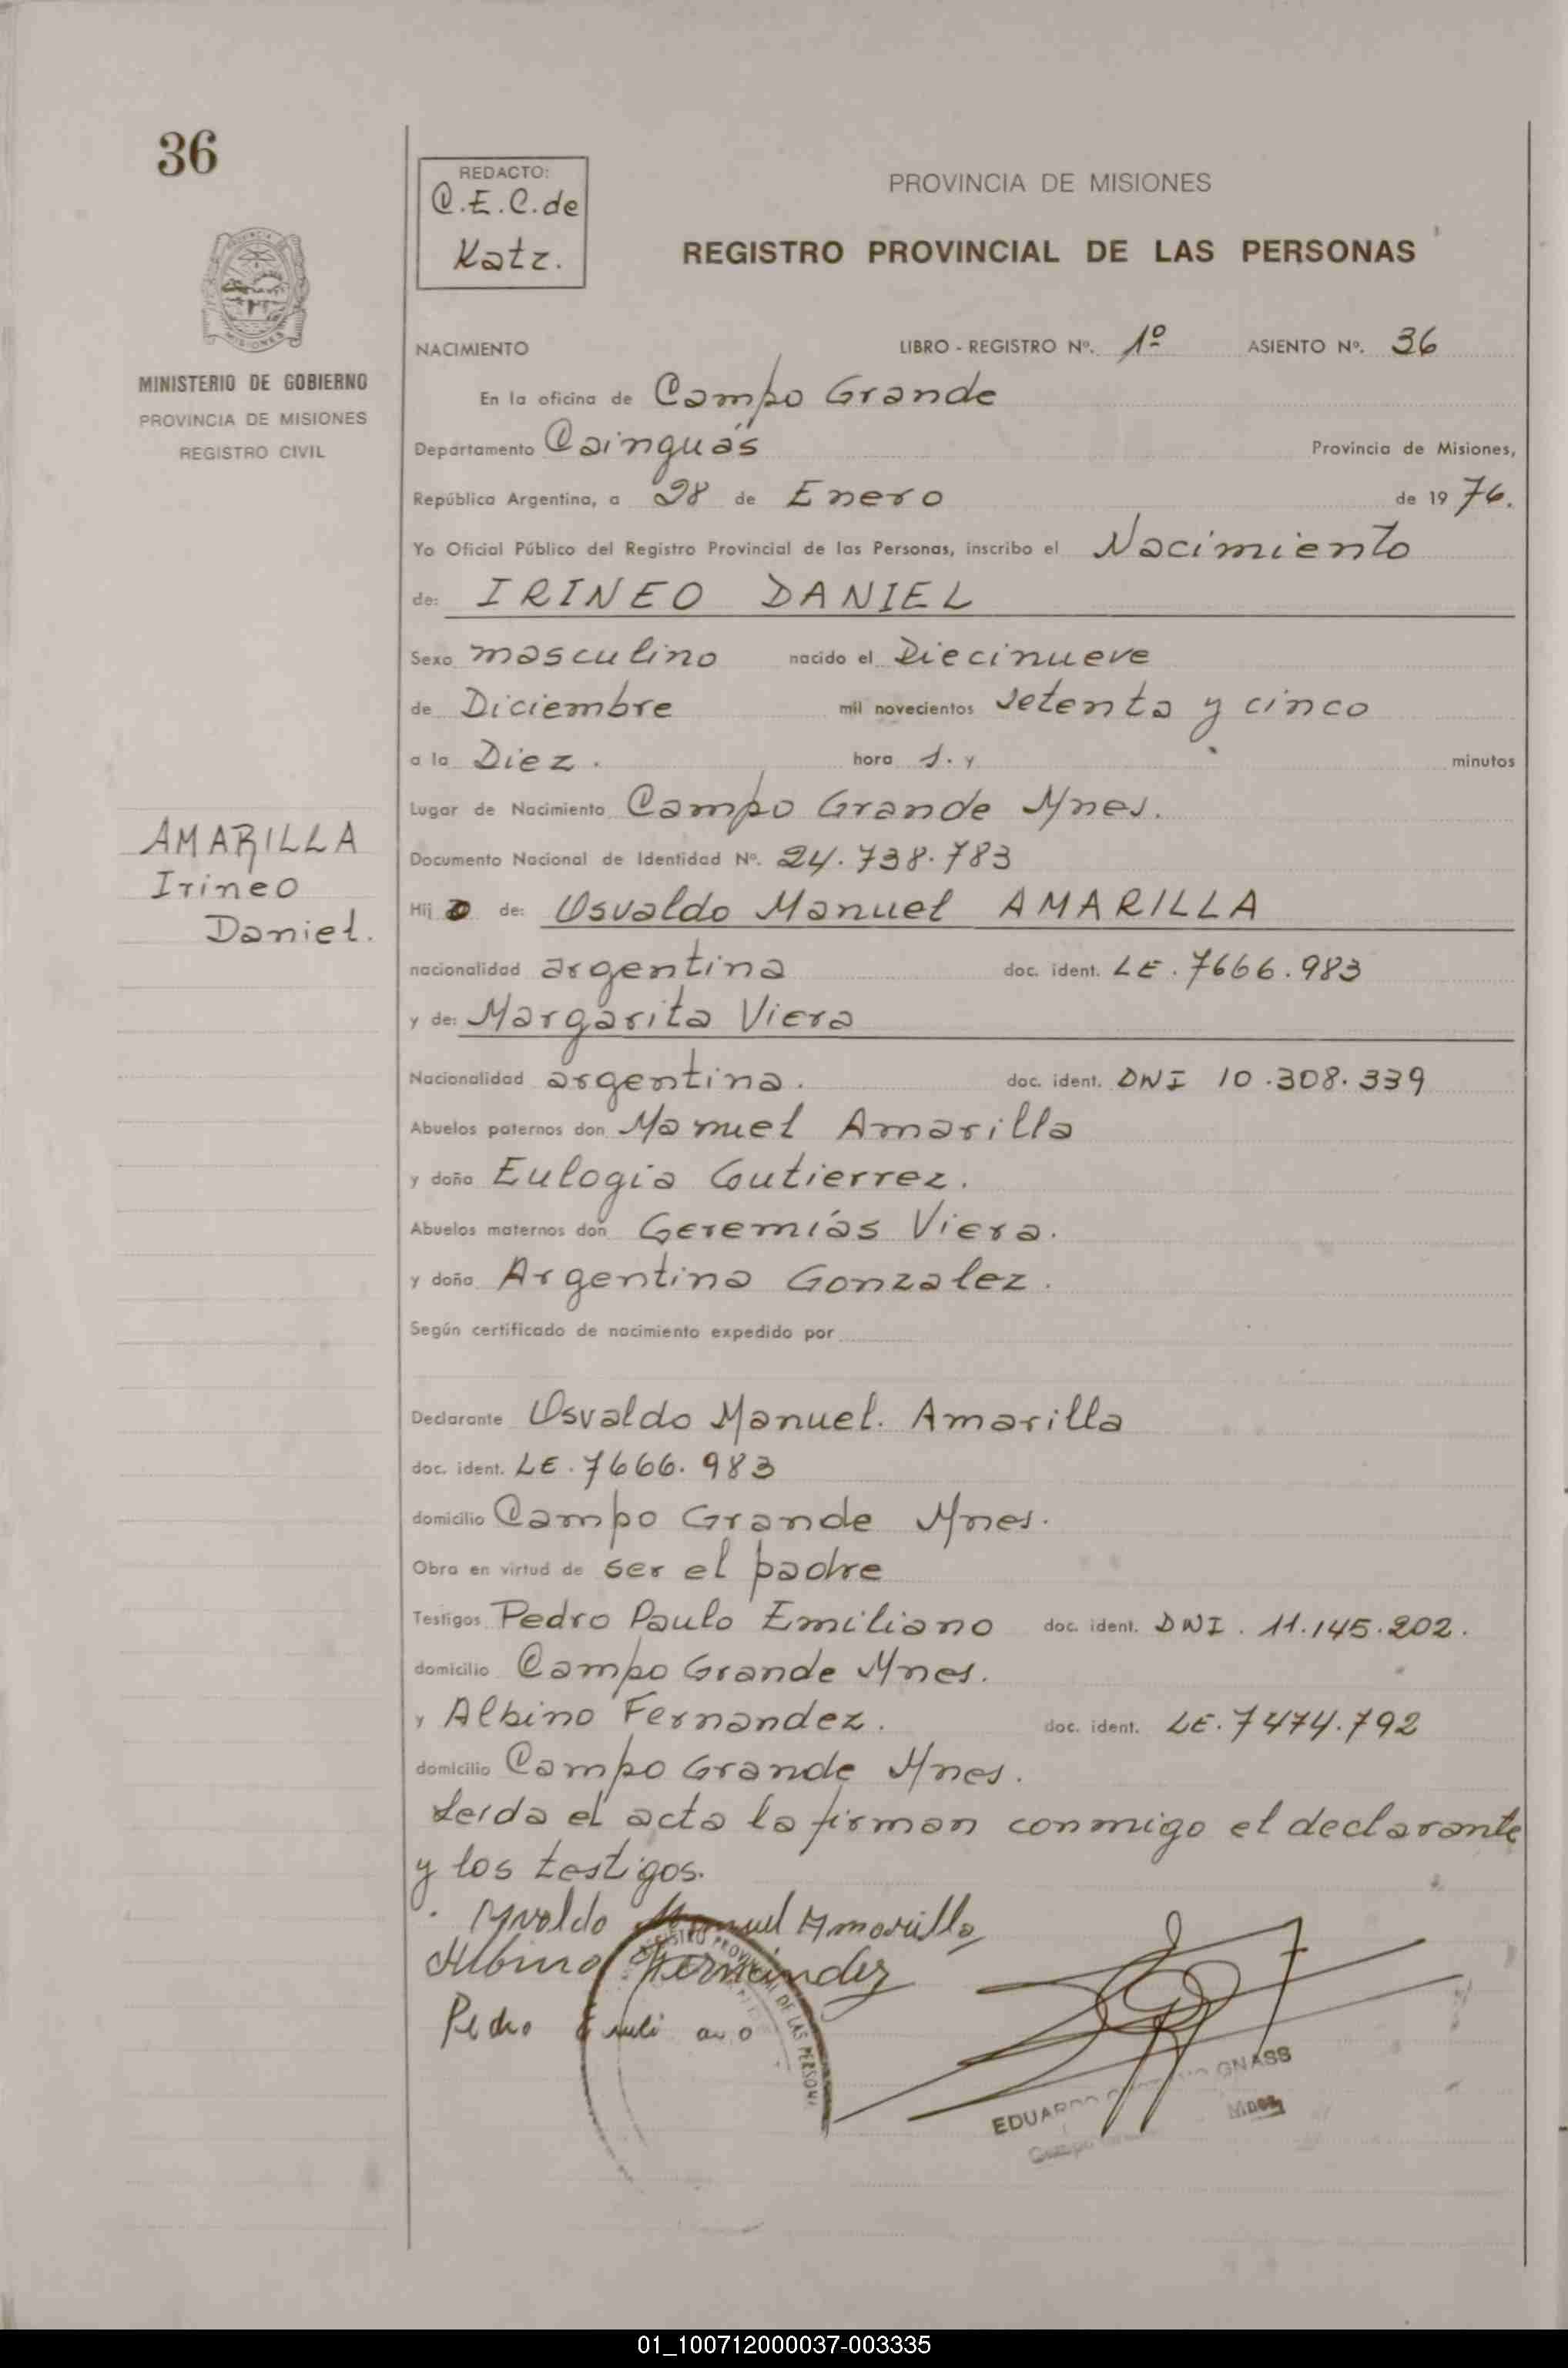 36
REDACTO:
C.E.C. de
Katz.
PROVINCIA DE MISIONES
REGISTRO PROVINCIAL DE LAS PERSONAS
MINISTERIO DE GOBIERNO
PROVINCIA DE MISIONES
REGISTRO CIVIL
NACIMIENTO LIBRO - REGISTRO Nº. 1º ASIENTO Nº. 36
En la oficina de Campo Grande
Departamento Cainguás Provincia de Misiones,
República Argentina, a 28 de Enero de 19 76.
Yo Oficial Público del Registro Provincial de las Personas, inscribo el Nacimiento
de: IRINEO DANIEL
Sexo masculino nacido el Diecinueve
de Diciembre mil novecientos setenta y cinco
a la Diez. hora s. y minutos
Lugar de Nacimiento Campo Grande Mnes.
AMARILLA
Irineo
Daniel.
Documento Nacional de Identidad Nº. 24.738.783
Hij o de: Osvaldo Manuel AMARILLA
nacionalidad argentina doc. ident. LE. 7666.983
y de: Margarita Viera
Nacionalidad argentina. doc. ident. DNI 10.308.339
Abuelos paternos don Manuel Amarilla
y doña Eulogia Gutierrez.
Abuelos maternos don Geremías Viera.
y doña Argentina Gonzalez.
Según certificado de nacimiento expedido por
Declarante Osvaldo Manuel. Amarilla
doc. ident. LE. 7666.983
domicilio Campo Grande Mnes.
Obra en virtud de ser el padre
Testigos Pedro Paulo Emiliano doc. ident. DNI. 11.145.202.
domicilio Campo Grande Mnes.
y Albino Fernandez. doc. ident. LE. 7474.792
domicilio Campo Grande Mnes.
Leida el acta la firman conmigo el declarante
y los testigos.
Osvaldo Manuel Amarilla
Albino Fernández
Pedro Emiliano
REGISTRO PROVINCIAL DE LAS PERSON
EDUARDO GNASS
Mnes
01_100712000037-003335